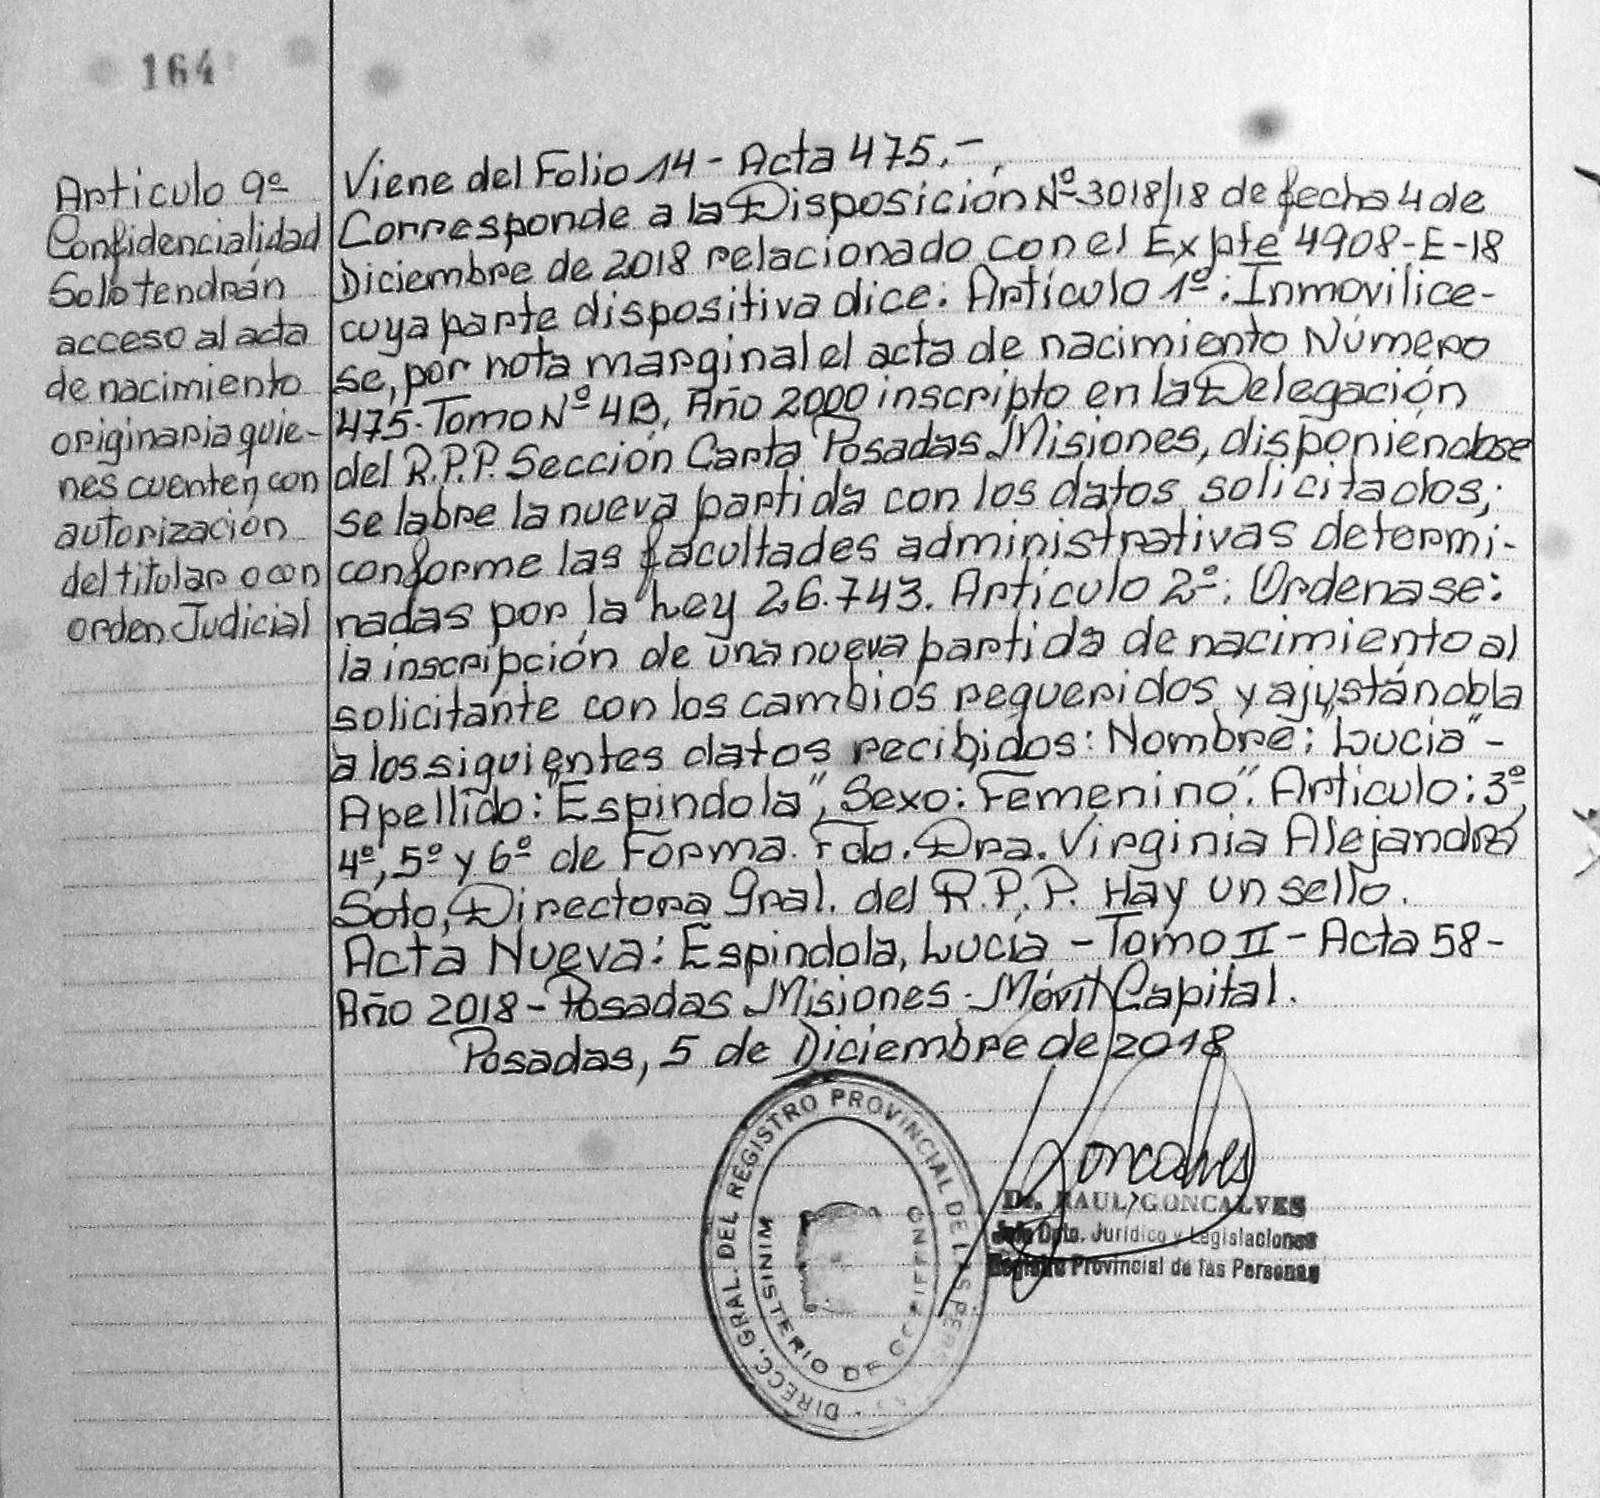 164
Articulo 9º
Confidencialidad
Solo tendrán
acceso al acta
de nacimiento
originaria quie-
nes cuenten con
autorización
del titular o con
orden Judicial
Viene del Folio 14 - Acta 475.-
Corresponde a la Disposición Nº 3018/18 de fecha 4 de
Diciembre de 2018 relacionado con el Expte 4908-E-18
cuya parte dispositiva dice: Artículo 1º: Inmovilice-
se, por nota marginal el acta de nacimiento Número
475. Tomo Nº 4B, Año 2000 inscripto en la Delegación
del R.P.P. Sección Carta Posadas Misiones, disponiendose
se labre la nueva partida con los datos solicitados;
conforme las facultades administrativas determi-
nadas por la Ley 26.743. Artículo 2º: Ordenase:
la inscripción de una nueva partida de nacimiento al
solicitante con los cambios requeridos y ajustándola
a los siguientes datos recibidos: Nombre: "Lucia" -
Apellido: "Espindola", Sexo: Femenino". Articulo: 3º,
4º, 5º y 6º de Forma. Fdo. Dra. Virginia Alejandra
Soto, Directora Gral. del R.P.P. Hay un sello.
Acta Nueva: Espindola, Lucia - Tomo II - Acta 58 -
Año 2018 - Posadas Misiones. Móvil Capital.
Posadas, 5 de Diciembre de 2018
DIRECC. GRAL. DEL REGISTRO PROVINCIAL DE
MINISTERIO DE
Goncalves
Dr. RAUL GONCALVES
Jefe Dpto. Jurídico y Legislaciones
Registro Provincial de las Personas